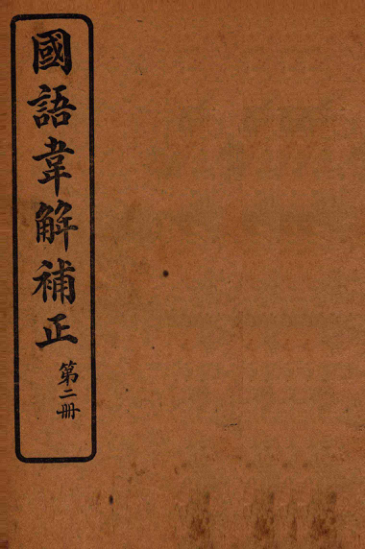 國語韋解補正
第二册